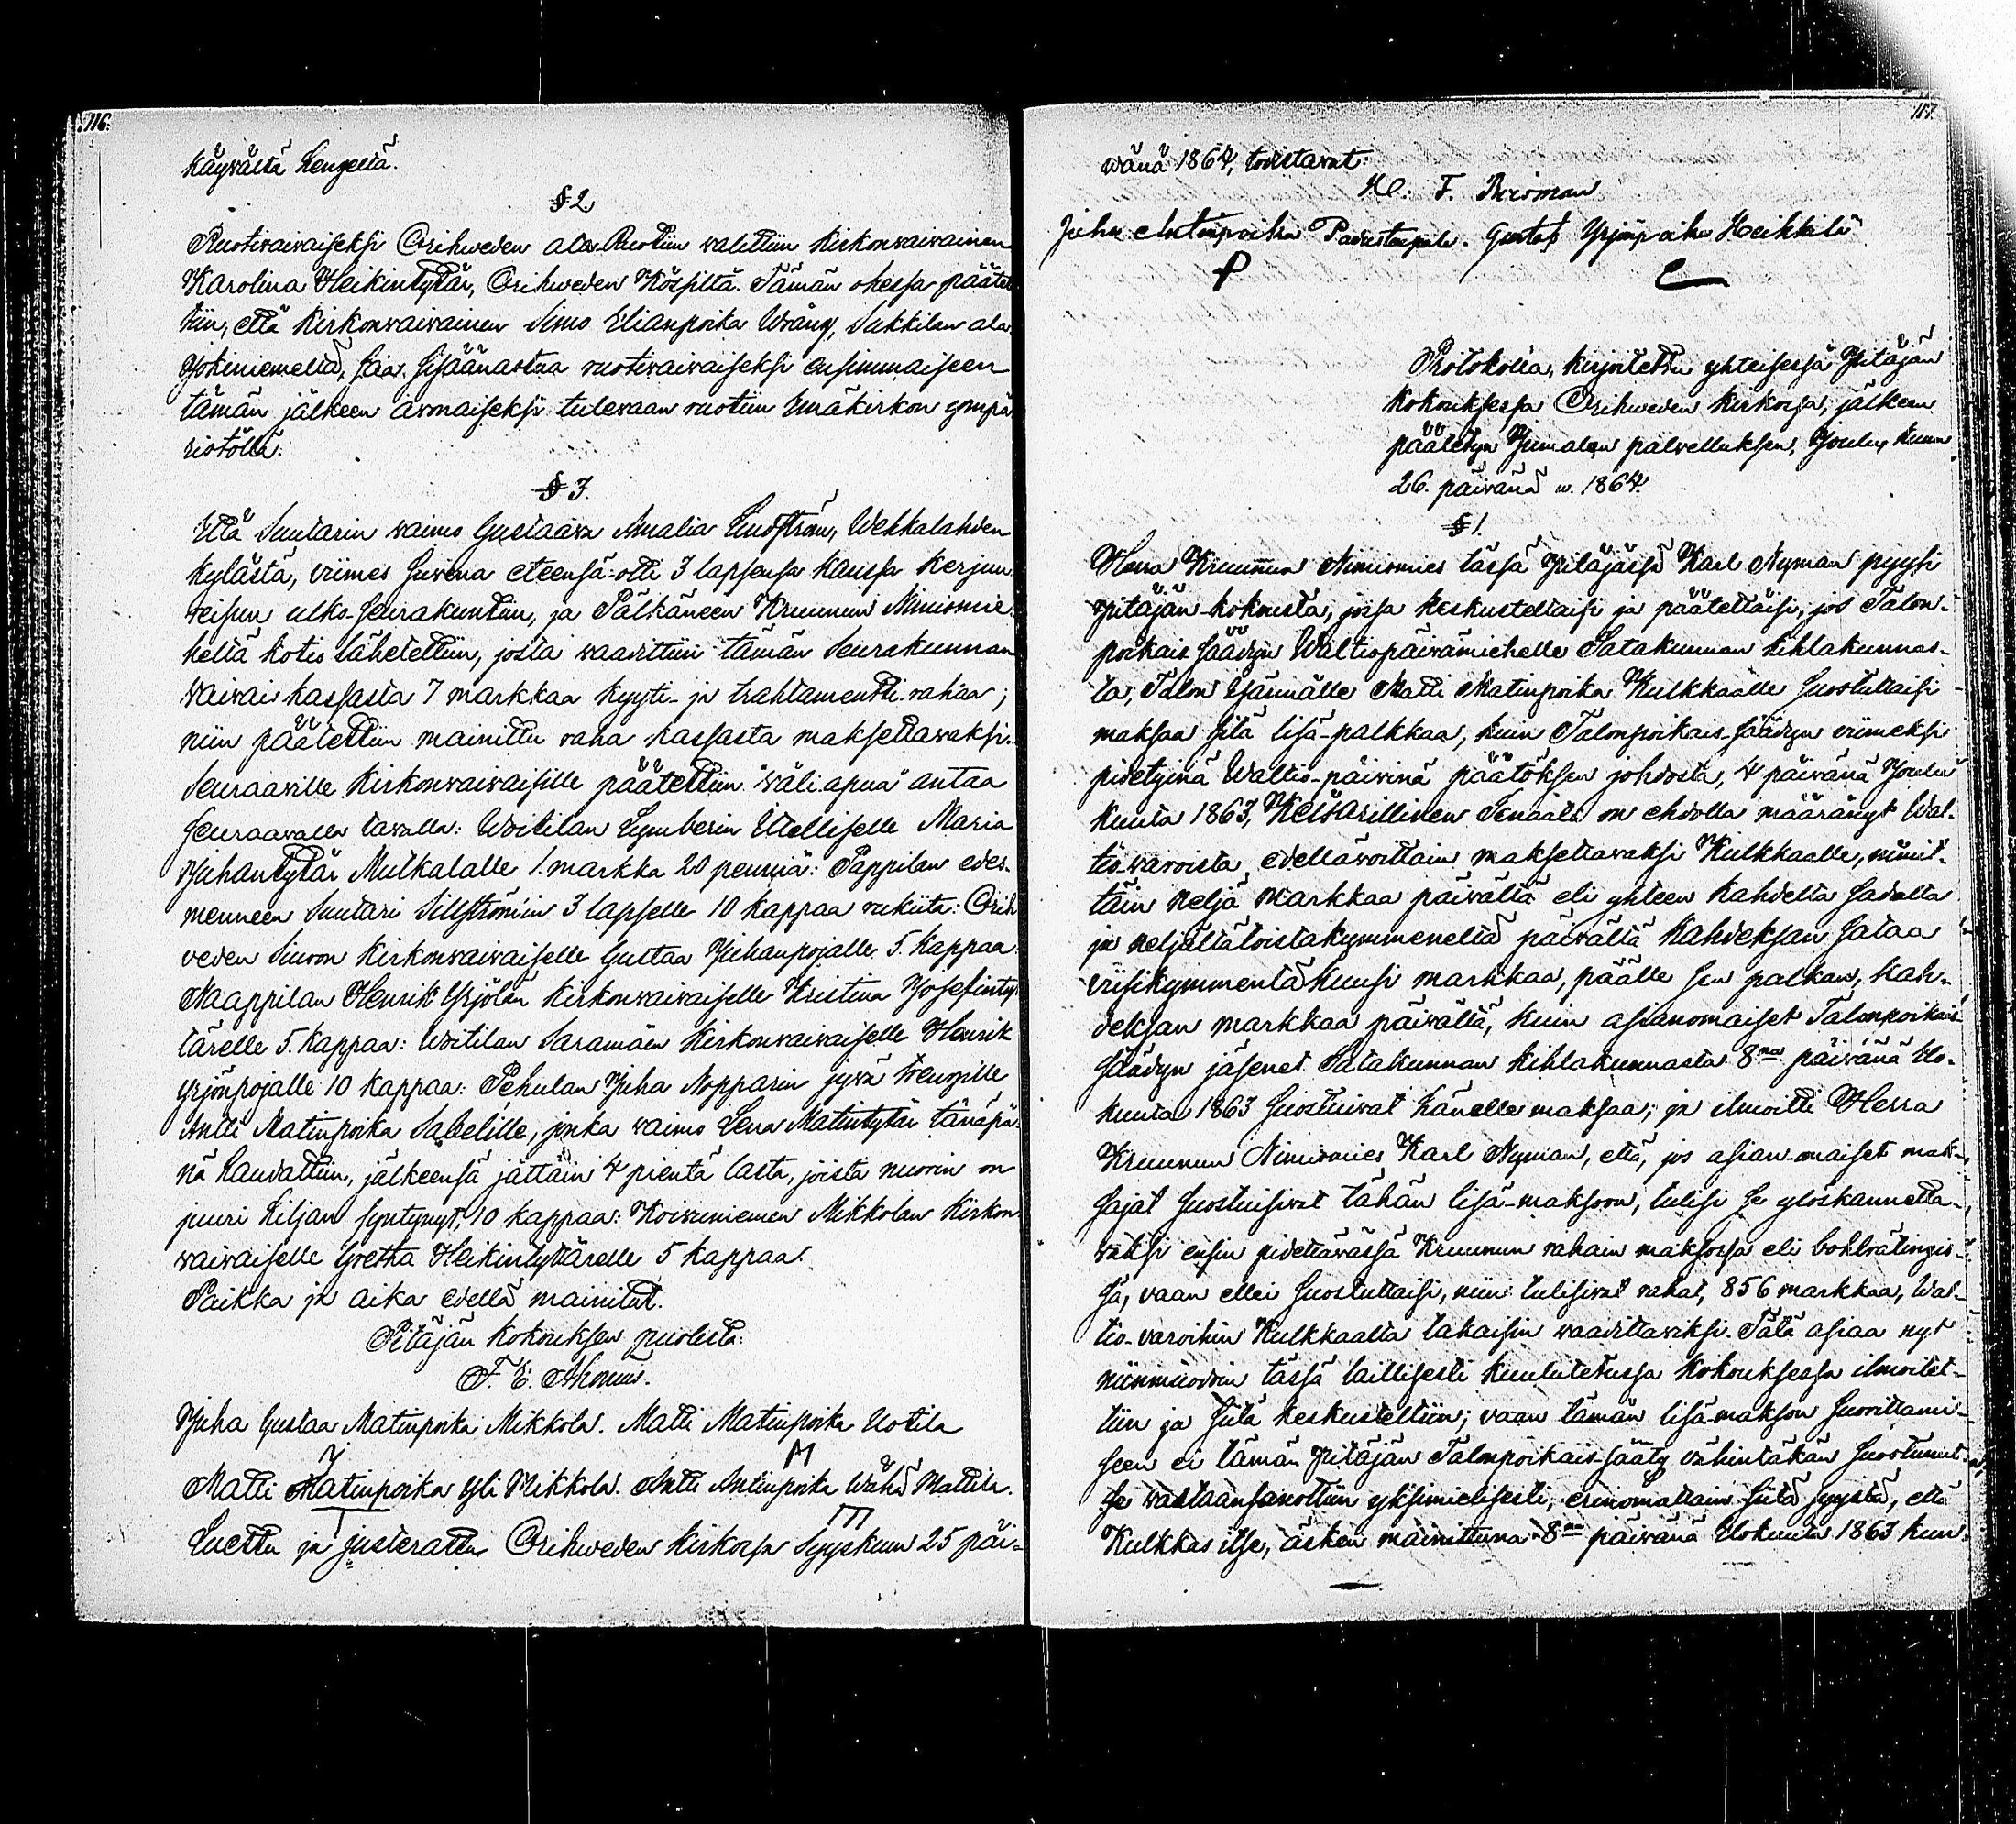 116.
käywästä Hengestä.
§ 2.
Ruotiwaiwaiseksi Orihweden ala Ruotiin walittiin kirkonwaiwainen
Karolina Heikintytär, Orihweden Kössiltä. Tämän ohessa päätet
tiin, että kirkonwaiwainen Simo Elianpoika Wräng, Sukkilan ala
Jokiniemeltä, saa sisäänastua ruotiwaiwaiseksi ensimmaiseen
tämän jälkeen awonaiseksi tulewaan ruotiin Emäkirkon ympä
ristöllä.
§ 3.
Että Suutarin waimo Gustaawa Amalia Lindström, Wehkalahden
kylästä, viimes suwena eteensä-otti 3 lapsensa kanssa kerjuu
reisun ulko-seurakuntiin, ja Pälkäneen Kruunun Nimismie
heltä kotio lähetettiin, josta waadittiin tämän Seurakunnan
waiwais kassasta 7 markkaa kyyti- ja trahtamentti rahaa;
niin päätettiin mainittu raha kassasta maksettawaksi.
Seuraawille kirkonwaiwaisille päätettiin "wäli apua" antaa
seuraawalla tavalla: Woitilan Lymberin Itselliselle Maria
Juhantytär Mutkalalle 1 markka 20 penniä: Pappilan edes-
menneen Suutari Sillströmin 3 lapselle 10 kappaa rukiita: Orih
veden Siuron kirkonwaiwaiselle Gustaa Juhanpojalle 5 kappaa:
Naappilan Henrik Yrjölän kirkonwaiwaiselle Kristina Josefinty
tärelle 5 kappaa: Woitilan Saramäen kirkonwaiwaiselle Henrik
Yrjönpojalle 10 kappaa: Pehulan Juha Nopparin jywä trengille
Antti Matinpoika Sabelille, jonka waimo Lena Matintytär tänäpä
nä haudattiin, jälkeensä jättäin 4 pientä lasta, joista nuorin on
juuri Liljan syntynyt, 10 kappaa: Koivuniemen Mikkolan kirkon
waiwaiselle Gretha Heikintyttärelle 5 kappaa.
Paikka ja aika edellä mainitut.
Pitäjän kokouksen puolesta:
F. E. Ahonius.
Juha Gustaa Matinpoika Mikkola. Matti Matinpoika Uotila
Matti Matinpoika Yli Mikkola. Antti Antinpoika Wähä Mattila.
Luettu ja justerattu Orihweden kirkossa Syyskuun 25 päi=
117.
wänä 1864, todistawat:
F.
Juha Antinpoika Padustaipale. Gustaf Yrjönpoika Heikkilä
Protokolla, kirjoitettu yhteisessä Pitäjän
kokouksessa Orihweden kirkossa, jälkeen
päätetyn Jumalan palvelluksen, Joulu kuun
26. päiwänä w. 1864.
§ 1.
Herra Kruunun Nimismies tässä Pitäjässä Karl Nyman pyysi
pitäjän-kokousta, jossa keskusteltaisi ja päätettäisi, jos Talon-
poikais säädyn Waltiopäiwämiehelle Satakunnan kihlakunnas-
ta, Talon Isännälle Matti Matinpoika Kulkkaalle suostuttaisi
maksaa sitä lisä-palkkaa, kuin Talonpoikais-säädyn viimeksi
pidetyinä Waltio-päiwinä päätöksen johdosta, 4 päiwänä Joulu
kuuta 1863, Keisarillinen Senaati on ehdolla määrännyt Wal-
tio-waroista edelläwoittain maksettawaksi Kulkkaalle, nimit-
täin neljä markkaa päiwältä eli yhteen kahdelta sadalta
ja neljältätoistakymmeneltä päiwältä kahdeksan sataa
viisikymmentä kuusi markkaa, päälle sen palkan, kah-
deksan markkaa päiwältä, kuin asianomaiset Talonpoikais
säädyn jäsenet Satakunnan kihlakunnasta 8na päiwänä Elo-
kuuta 1863 suostuivat hänelle maksaa; ja ilmoitti Herra
Kruunun Nimismies Karl Nyman, että, jos asian-omaiset mak-
sajat suostuisiwat tähän lisä-maksoon, tulisi se ylöskannetta-
waksi ensin pidettäwässä Kruunun rahain maksossa eli bokhrätingis-
sä, vaan ellei suostuttaisi, niin tulisiwat rahat, 856 markkaa, Wal-
tio-varoihin Kulkkaalta takaisin waadittawiksi. Tätä asiaa nyt
niinmuodoin tässä laillisesti kuulutetussa kokouksessa ilmoitet-
tiin ja siitä keskusteltiin; vaan tämän lisä-makson suorittami-
seen ei tämän pitäjän Talonpoikais-sääty vähintäkän suostunut.
Se wastaansanottiin yksimielisesti, erinomattain siitä syystä, että
Kulkkas itse, äsken mainittuna 8na päiwänä Elokuuta 1863 kun-